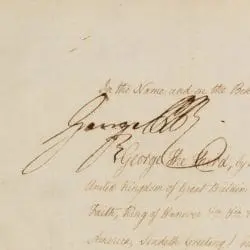 In the Name and on the Beh
George P R
George the Third, by
United Kingdom of Great Britain
Faith, King of Hanover
America, Sendeth Greeting!